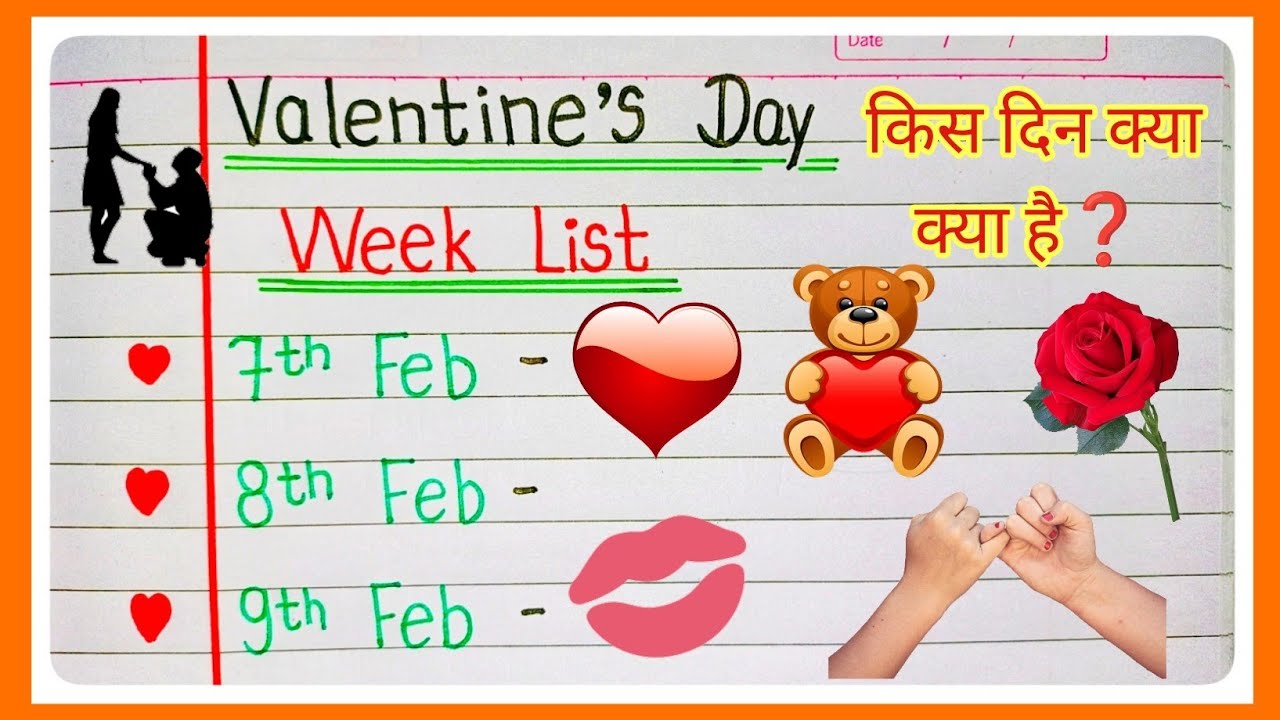 Date / /
Valentine's Day
किस दिन क्या
क्या है ❓
Week List
7th Feb -
8th Feb -
9th Feb -